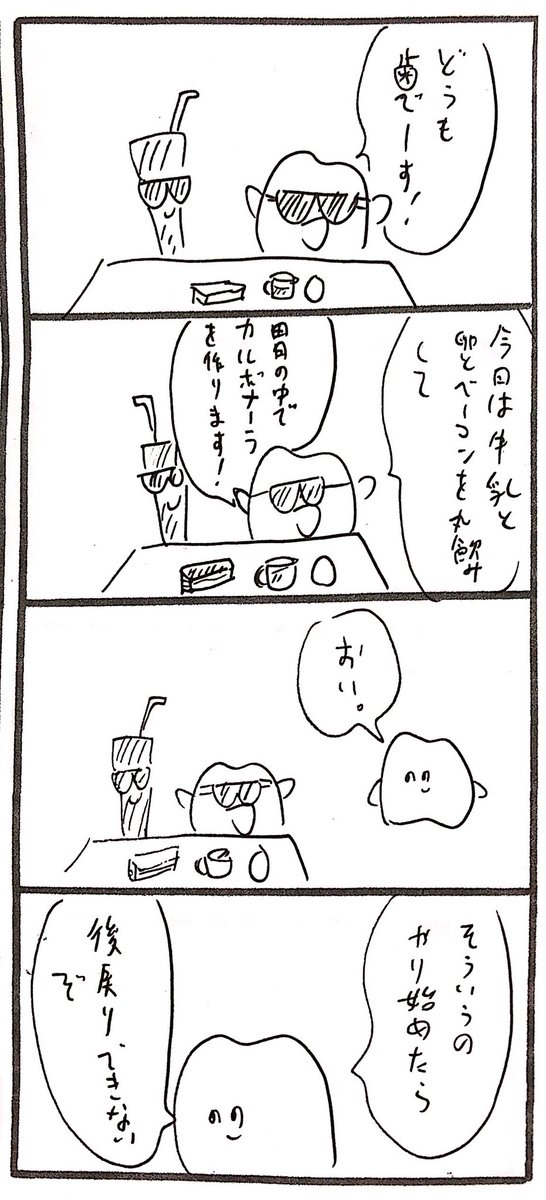 どうも
歯でーす!
今日は牛乳と
卵とベーコンを丸飲み
して
胃の中で
カルボナーラ
を作ります!
おい。
そういうの
やり始めたら
後戻りできない
ぞ